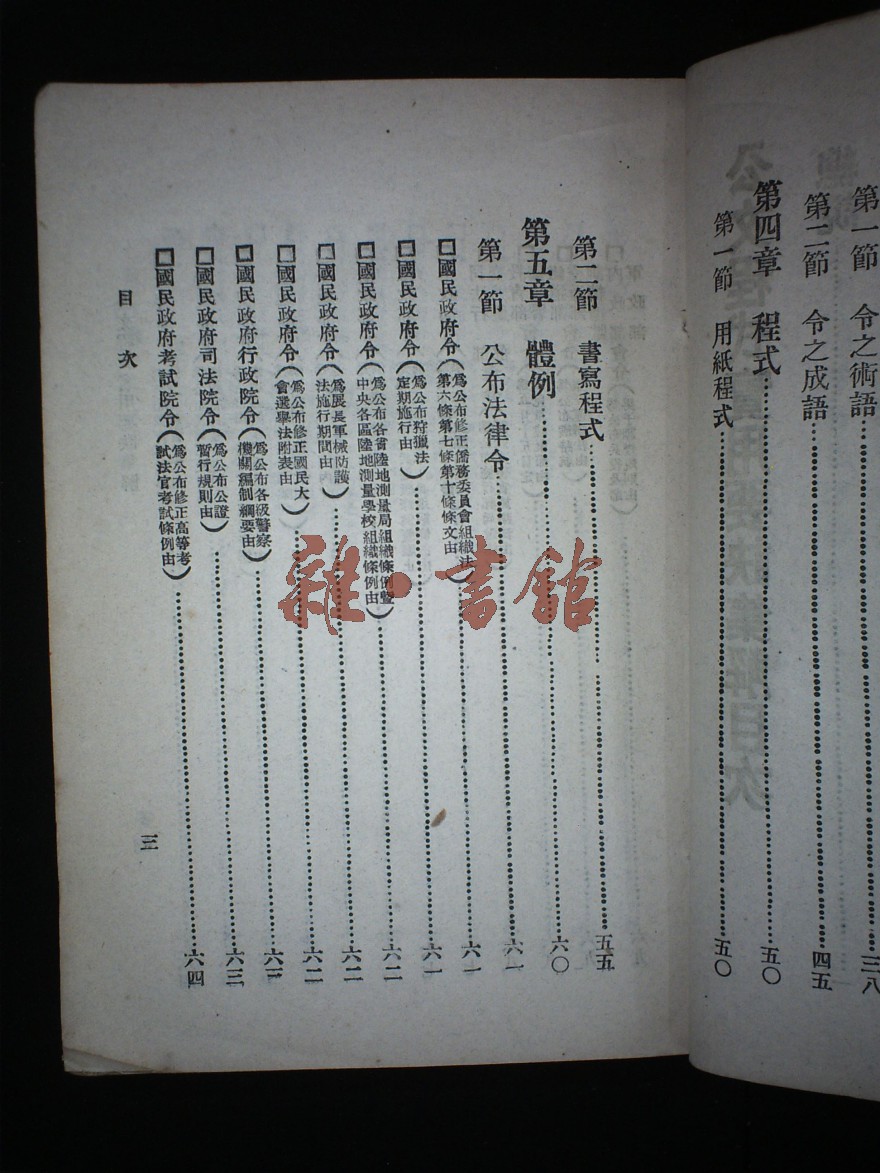 第一節　令之術語……三八
第二節　令之成語……四五
第四章　程式……五〇
第一節　用紙程式……五〇
第二節　書寫程式……五五
第五章　體例……六〇
第一節　公布法律令……六一
□國民政府令（爲公布修正僑務委員會組織法第六條第七條第十條條文由）……六一
□國民政府令（爲公布狩獵法定期施行由）……六一
□國民政府令（爲公布各省陸地測量局組織條例暨中央各區陸地測量學校組織條例由）……六二
□國民政府令（爲展長軍械防護法施行期間由）……六二
□國民政府令（爲公布修正國民大會選舉法附表由）……六二
□國民政府行政院令（爲公布各級警察機關編制綱要由）……六三
□國民政府司法院令（爲公布公證暫行規則由）……六三
□國民政府考試院令（爲公布修正高等考試法官考試條例由）……六四
目次
三
雜·書館